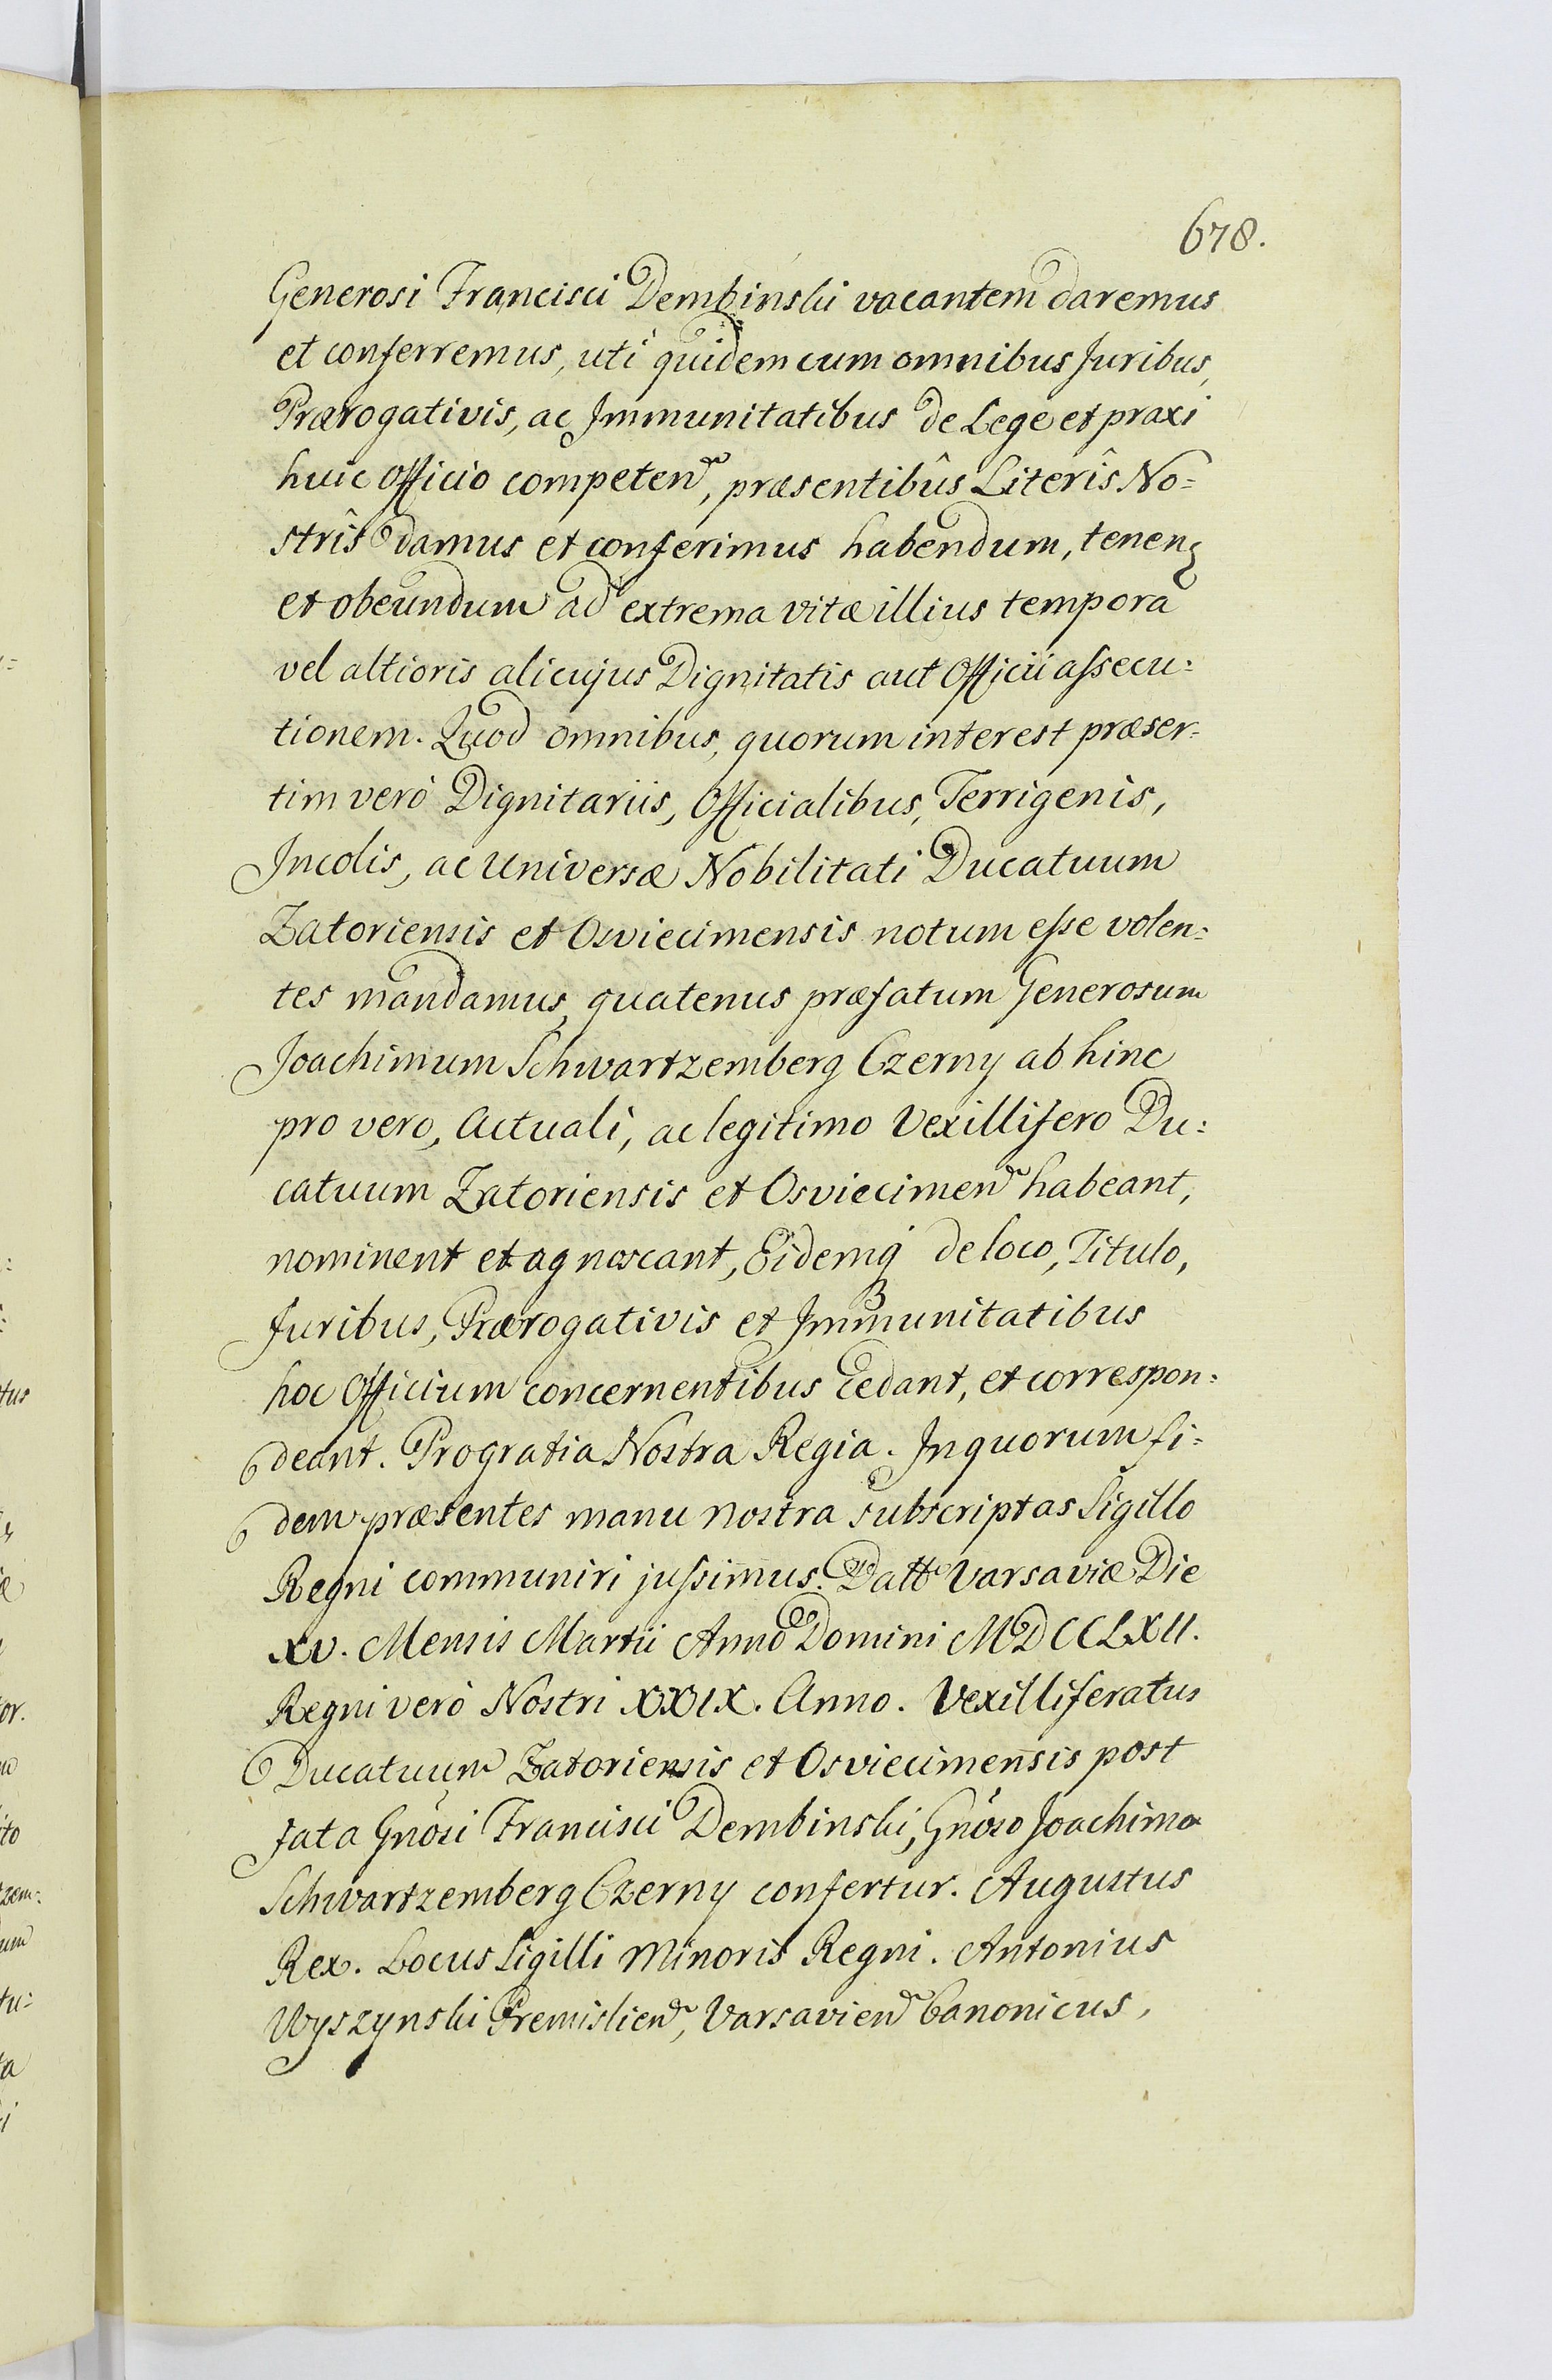 678.
Generosi Francisci Dembinski vacantem daremus
et conferremus, uti quidem cum omnibus Juribus,
Prærogativis, ac Immunitatibus de Lege et praxi
huic Officio competen, præsentibûs Literîs No=
strîs damus et conferimus habendum, tenen
et obeundum ad extrema vitæ illius tempora
vel altioris alicujus Dignitatis aut Officii aſsecu=
tionem. Quod omnibus, quorum interest præser=
tim verò Dignitariis, Officialibus, Terrigenis,
Incolis, ac Universæ Nobilitati Ducatuum
Zatoriensis et Osviecimensis notum eſse volen=
tes mandamus, quatenus præfatum Generosum
Joachimum Schwartzemberg Czerny ab hinc
pro vero, Actuali, ac legitimo Vexillifero Du=
catuum Zatoriensis et Osviecimen habeant,
nominent et agnoscant, Eidemq de loco, Titulo,
Juribus, Prærogativis et Immunitatibus
hoc Officium concernentibus cedant, et correspon=
deant. Pro gratia Nostra Regia. In quorum fi=
dem præsentes manu nostra subscriptas Sigillo
Regni communiri juſsimus. Datt Varsaviæ Die
XV. Mensis Martii Anno Domini MDCCLXII.
Regni verò Nostri XXIX. Anno. Vexilliferatus
Ducatuum Zatoriensis et Osviecimensis post
Fata Gnosi Francisci Dembinski, Gnoso Joachimo
Schwartzemberg Czerny confertur. Augustus
Rex. Locus Sigilli Minoris Regni. Antonius
Wyszynski Premislien, Varsavien Canonicus,